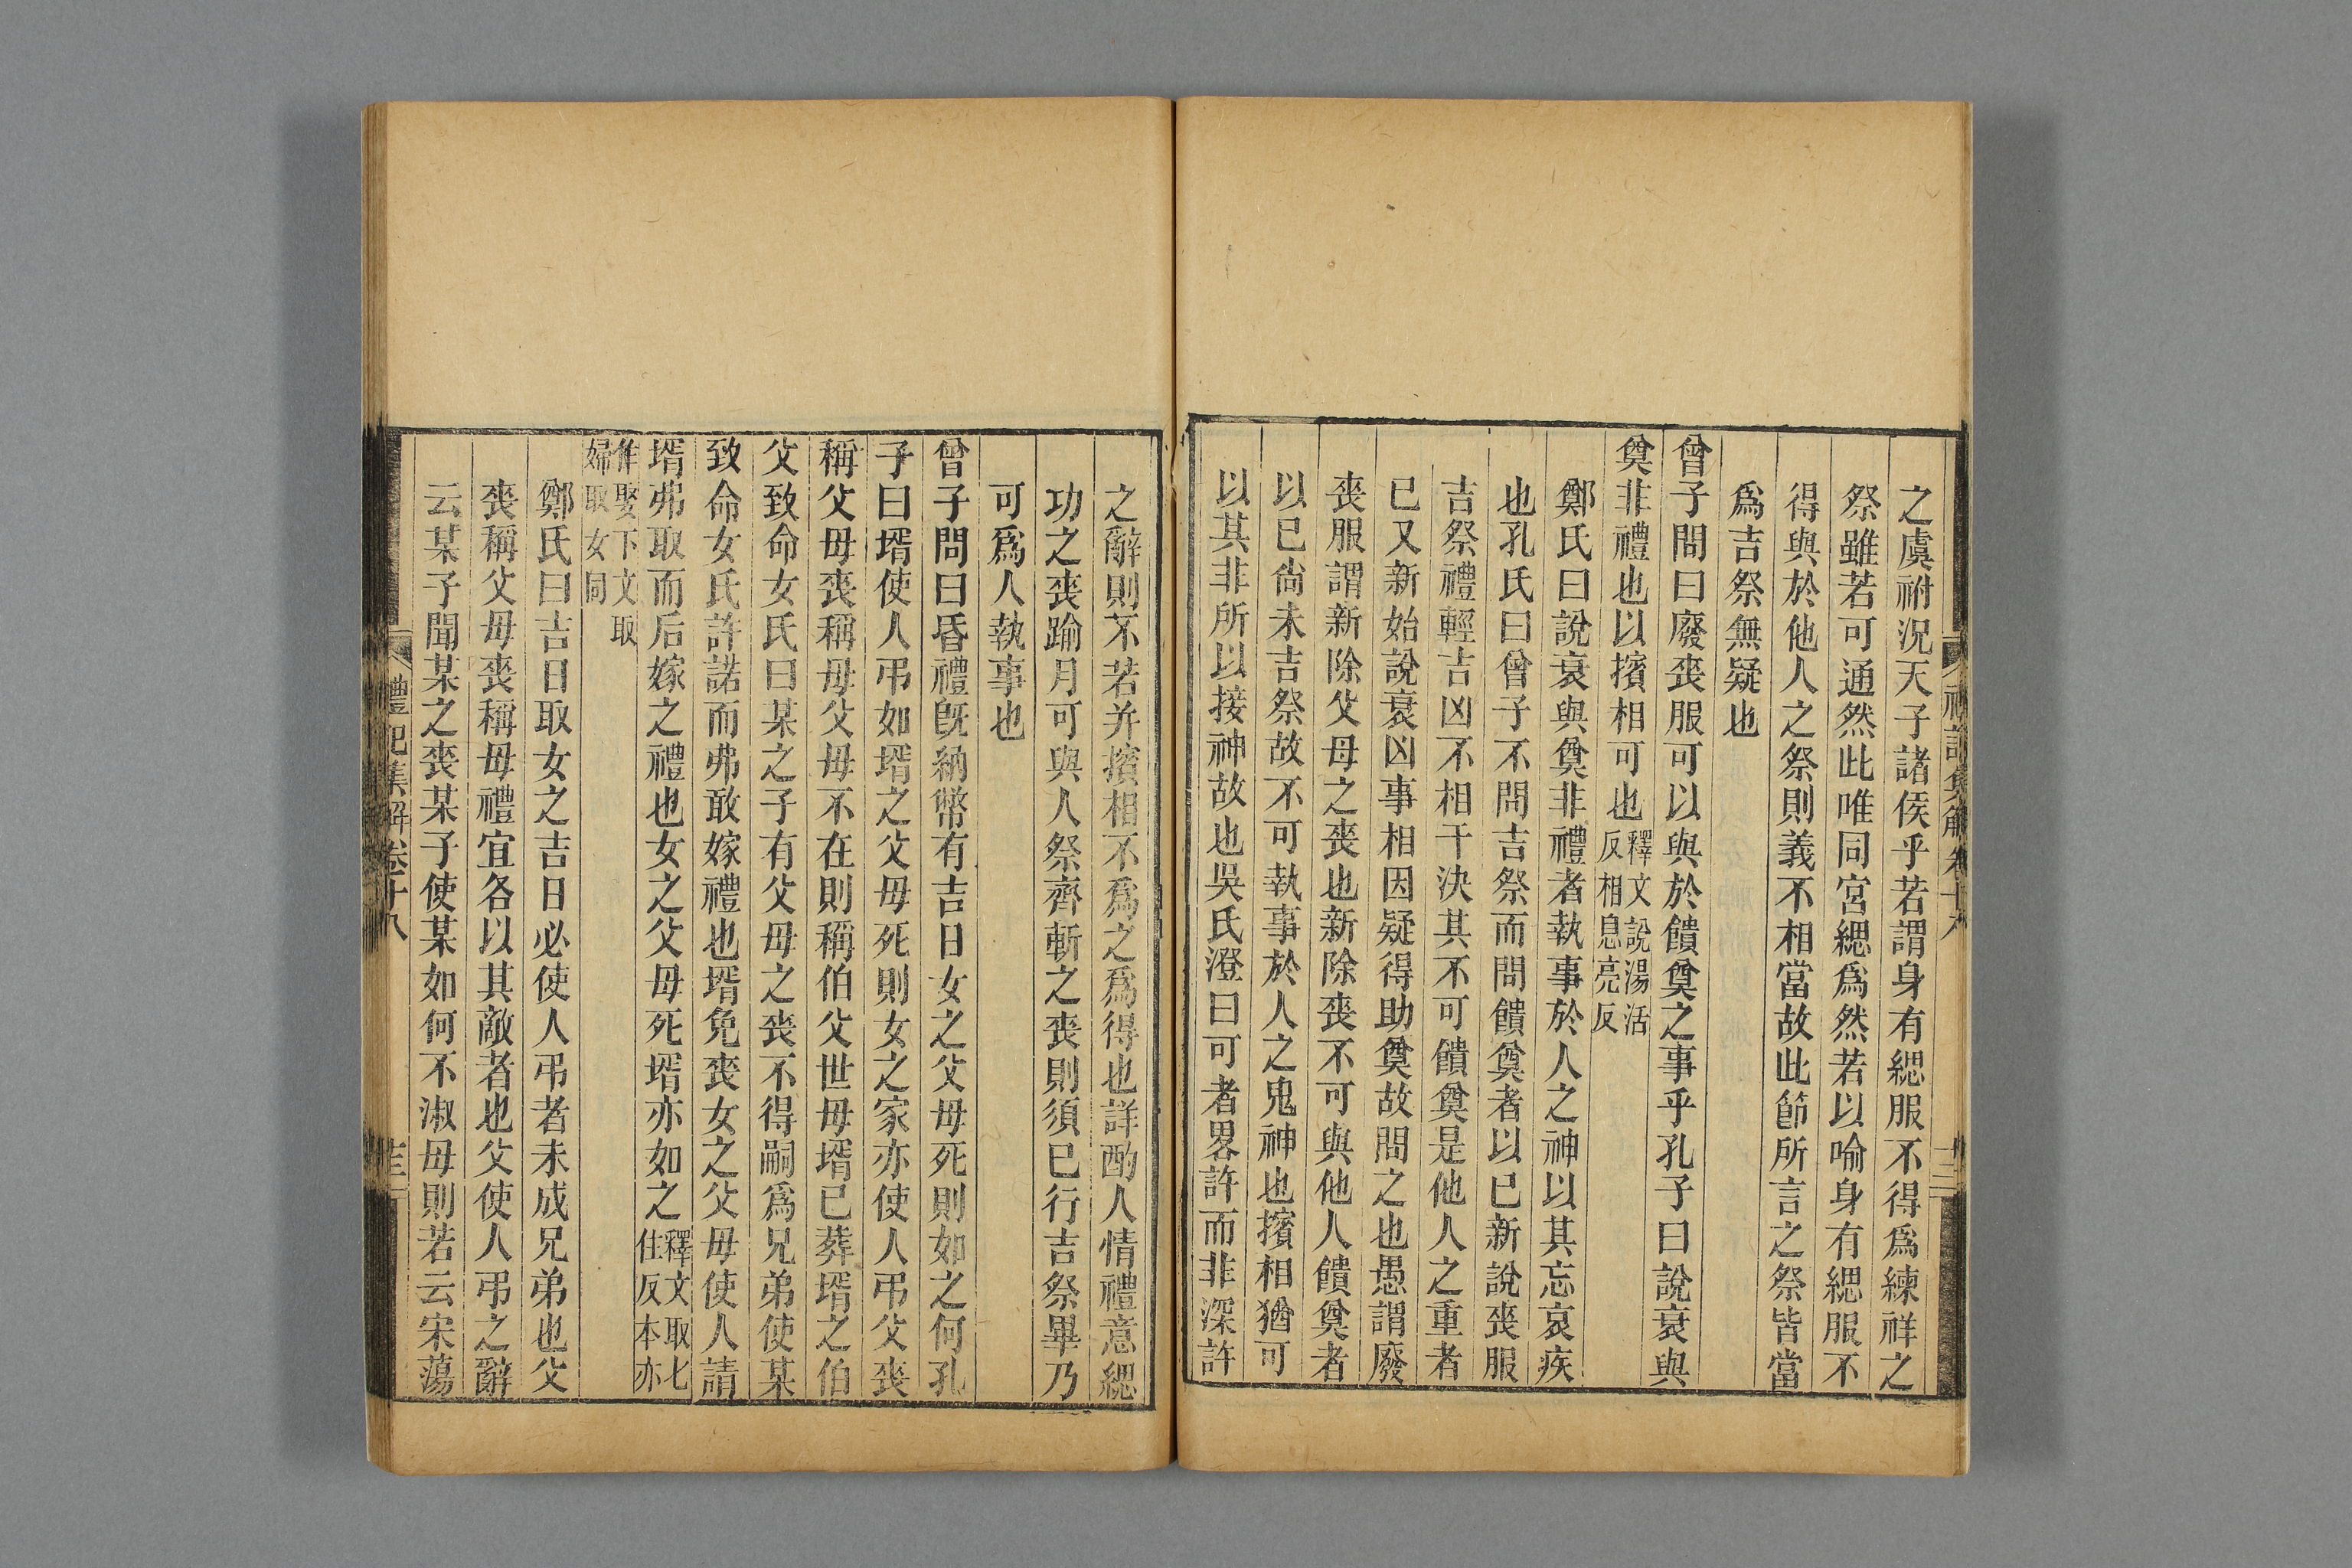 之虞祔況天子諸侯乎若謂身有緦服不得爲練祥之
祭雖若可通然此唯同宮緦爲然若以喻身有緦服不
得與於他人之祭則義不相當故此節所言之祭皆當
爲吉祭無疑也
曾子問曰廢喪服可以與於饋奠之事乎孔子曰說衰與
奠非禮也以擯相可也釋文說湯活
反相息亮反
鄭氏曰說衰與奠非禮者執事於人之神以其忘哀疾
也孔氏曰曾子不問吉祭而問饋奠者以已新說喪服
吉祭禮輕吉凶不相干決其不可饋奠是他人之重者
已又新始說衰凶事相因疑得助奠故問之也愚謂廢
喪服謂新除父母之喪也新除喪不可與他人饋奠者
以已尚未吉祭故不可執事於人之鬼神也擯相猶可
以其非所以接神故也吳氏澄曰可者畧許而非深許
之辭則不若并擯相不爲之爲得也詳酌人情禮意緦
功之喪踰月可與人祭齊斬之喪則須已行吉祭畢乃
可爲人執事也
曾子問曰昏禮旣納幣有吉日女之父母死則如之何孔
子曰壻使人弔如壻之父母死則女之家亦使人弔父喪
稱父母喪稱母父母不在則稱伯父世母壻已葬壻之伯
父致命女氏曰某之子有父母之喪不得嗣爲兄弟使某
致命女氏許諾而弗敢嫁禮也壻免喪女之父母使人請
壻弗取而后嫁之禮也女之父母死壻亦如之釋文取七
住反本亦
作娶下文取
婦取女同
鄭氏曰吉日取女之吉日必使人弔者未成兄弟也父
喪稱父母喪稱母禮宜各以其敵者也父使人弔之辭
云某子聞某之喪某子使某如何不淑母則若云宋蕩
禮記集解卷十八